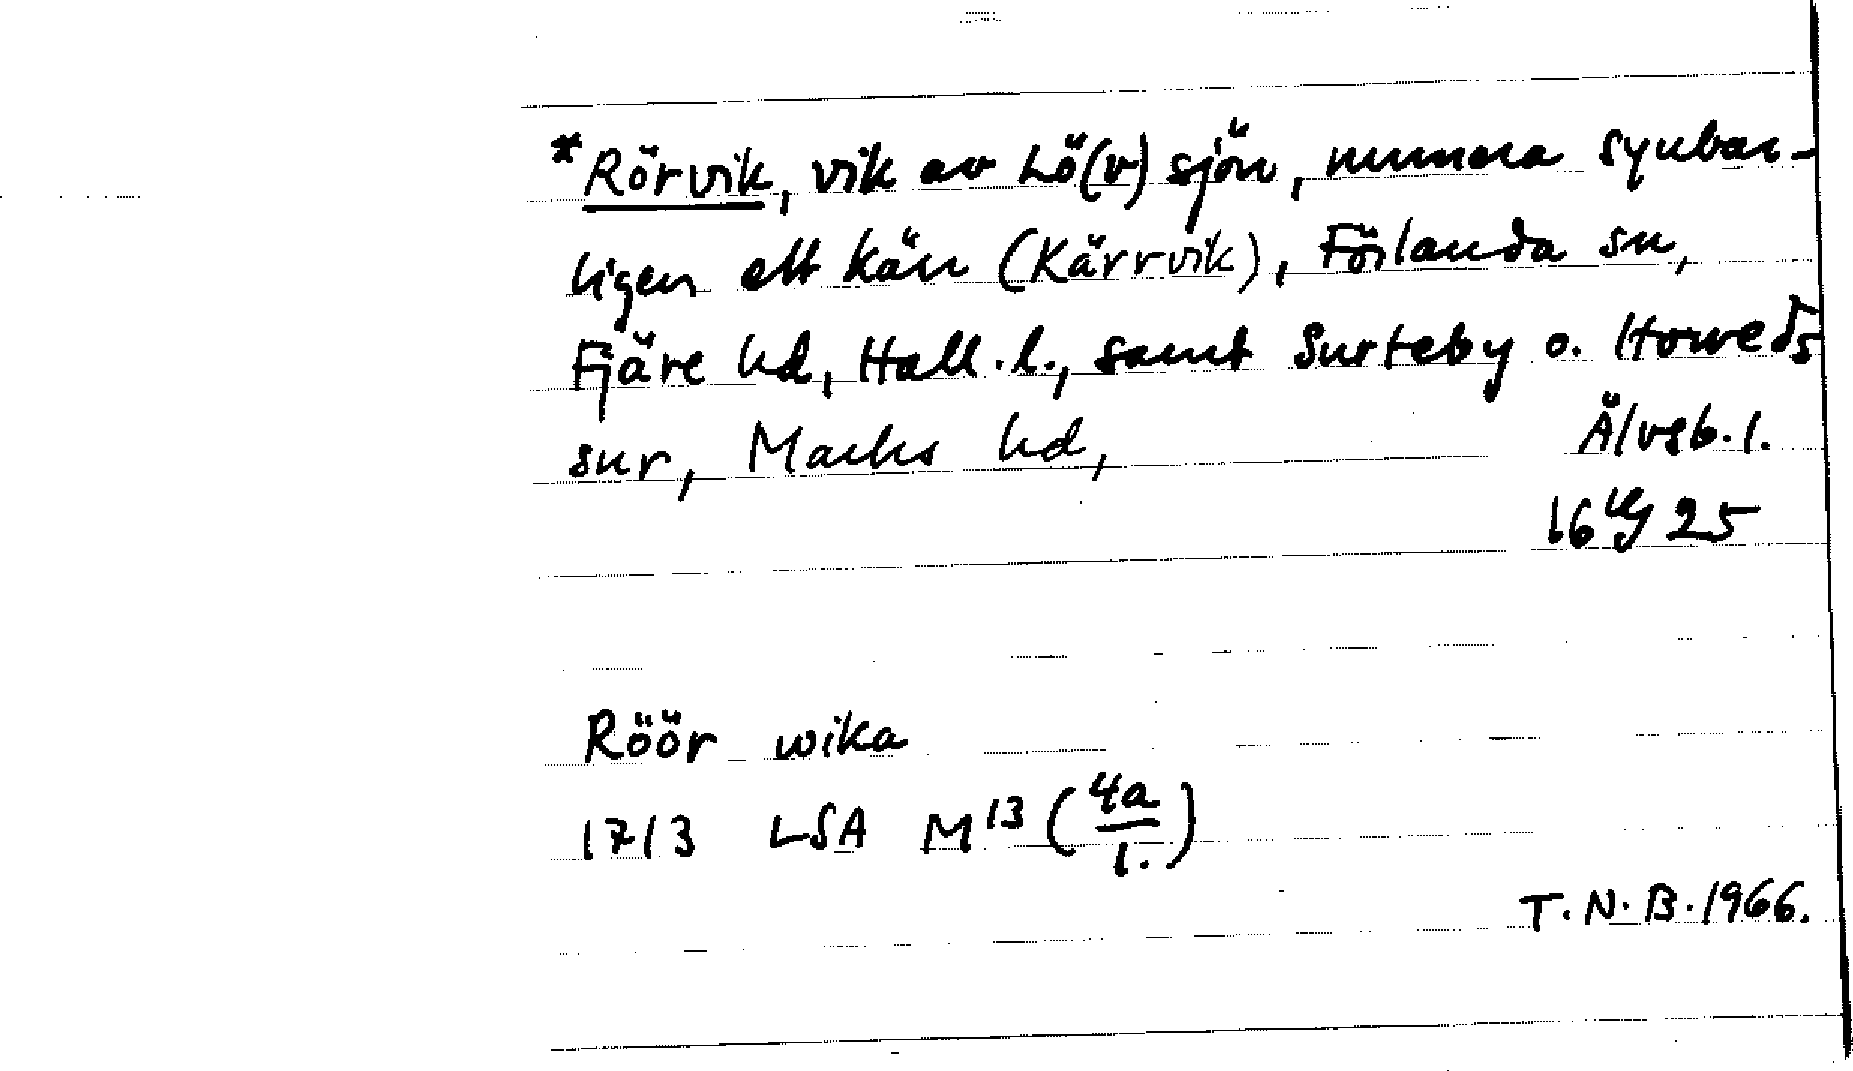 *Rörvik, vik av Lö(v)sjön, numera synbar-
ligen ett kärr (Kärrvik), Förlanda sn,
Fjäre hd, Hall.l., samt Surteby o. Horreds
snr, Marks hd, Älvsb.l.
16 25
Röör wika
1713 LSA M13 (4a/1.)
T.N.B. 1966.